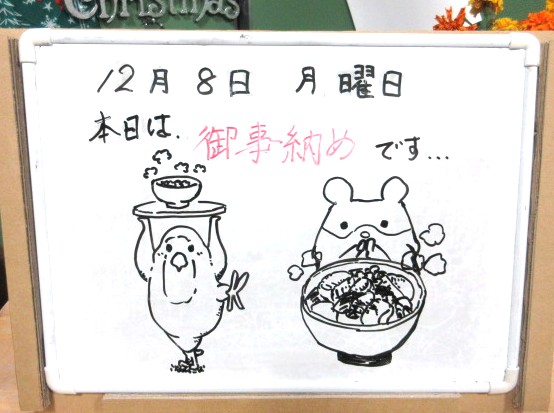 Christmas
12月 8日 月曜日
本日は、御事納めです...